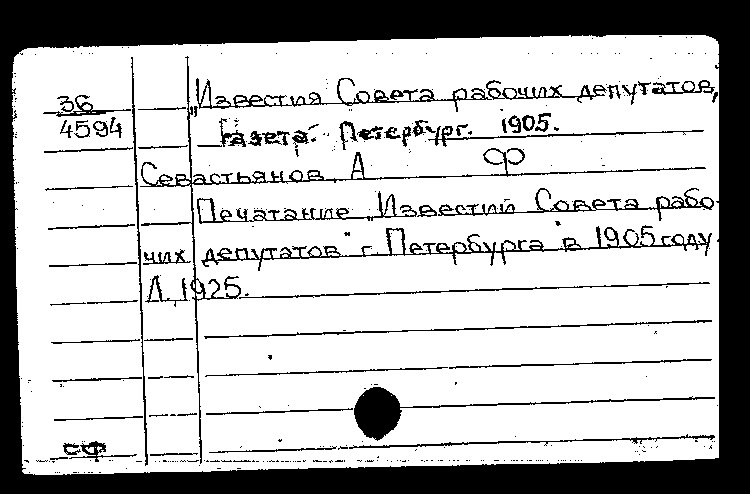 36
4594
„Известия Совета рабочих депутатов,
Газета. Петербург. 1905.
Ф
Севастьянов, А
Печатание „Известий Совета рабо-
чих депутатов" г. Петербурга в 1905 году.
Л., 1925.
СФ